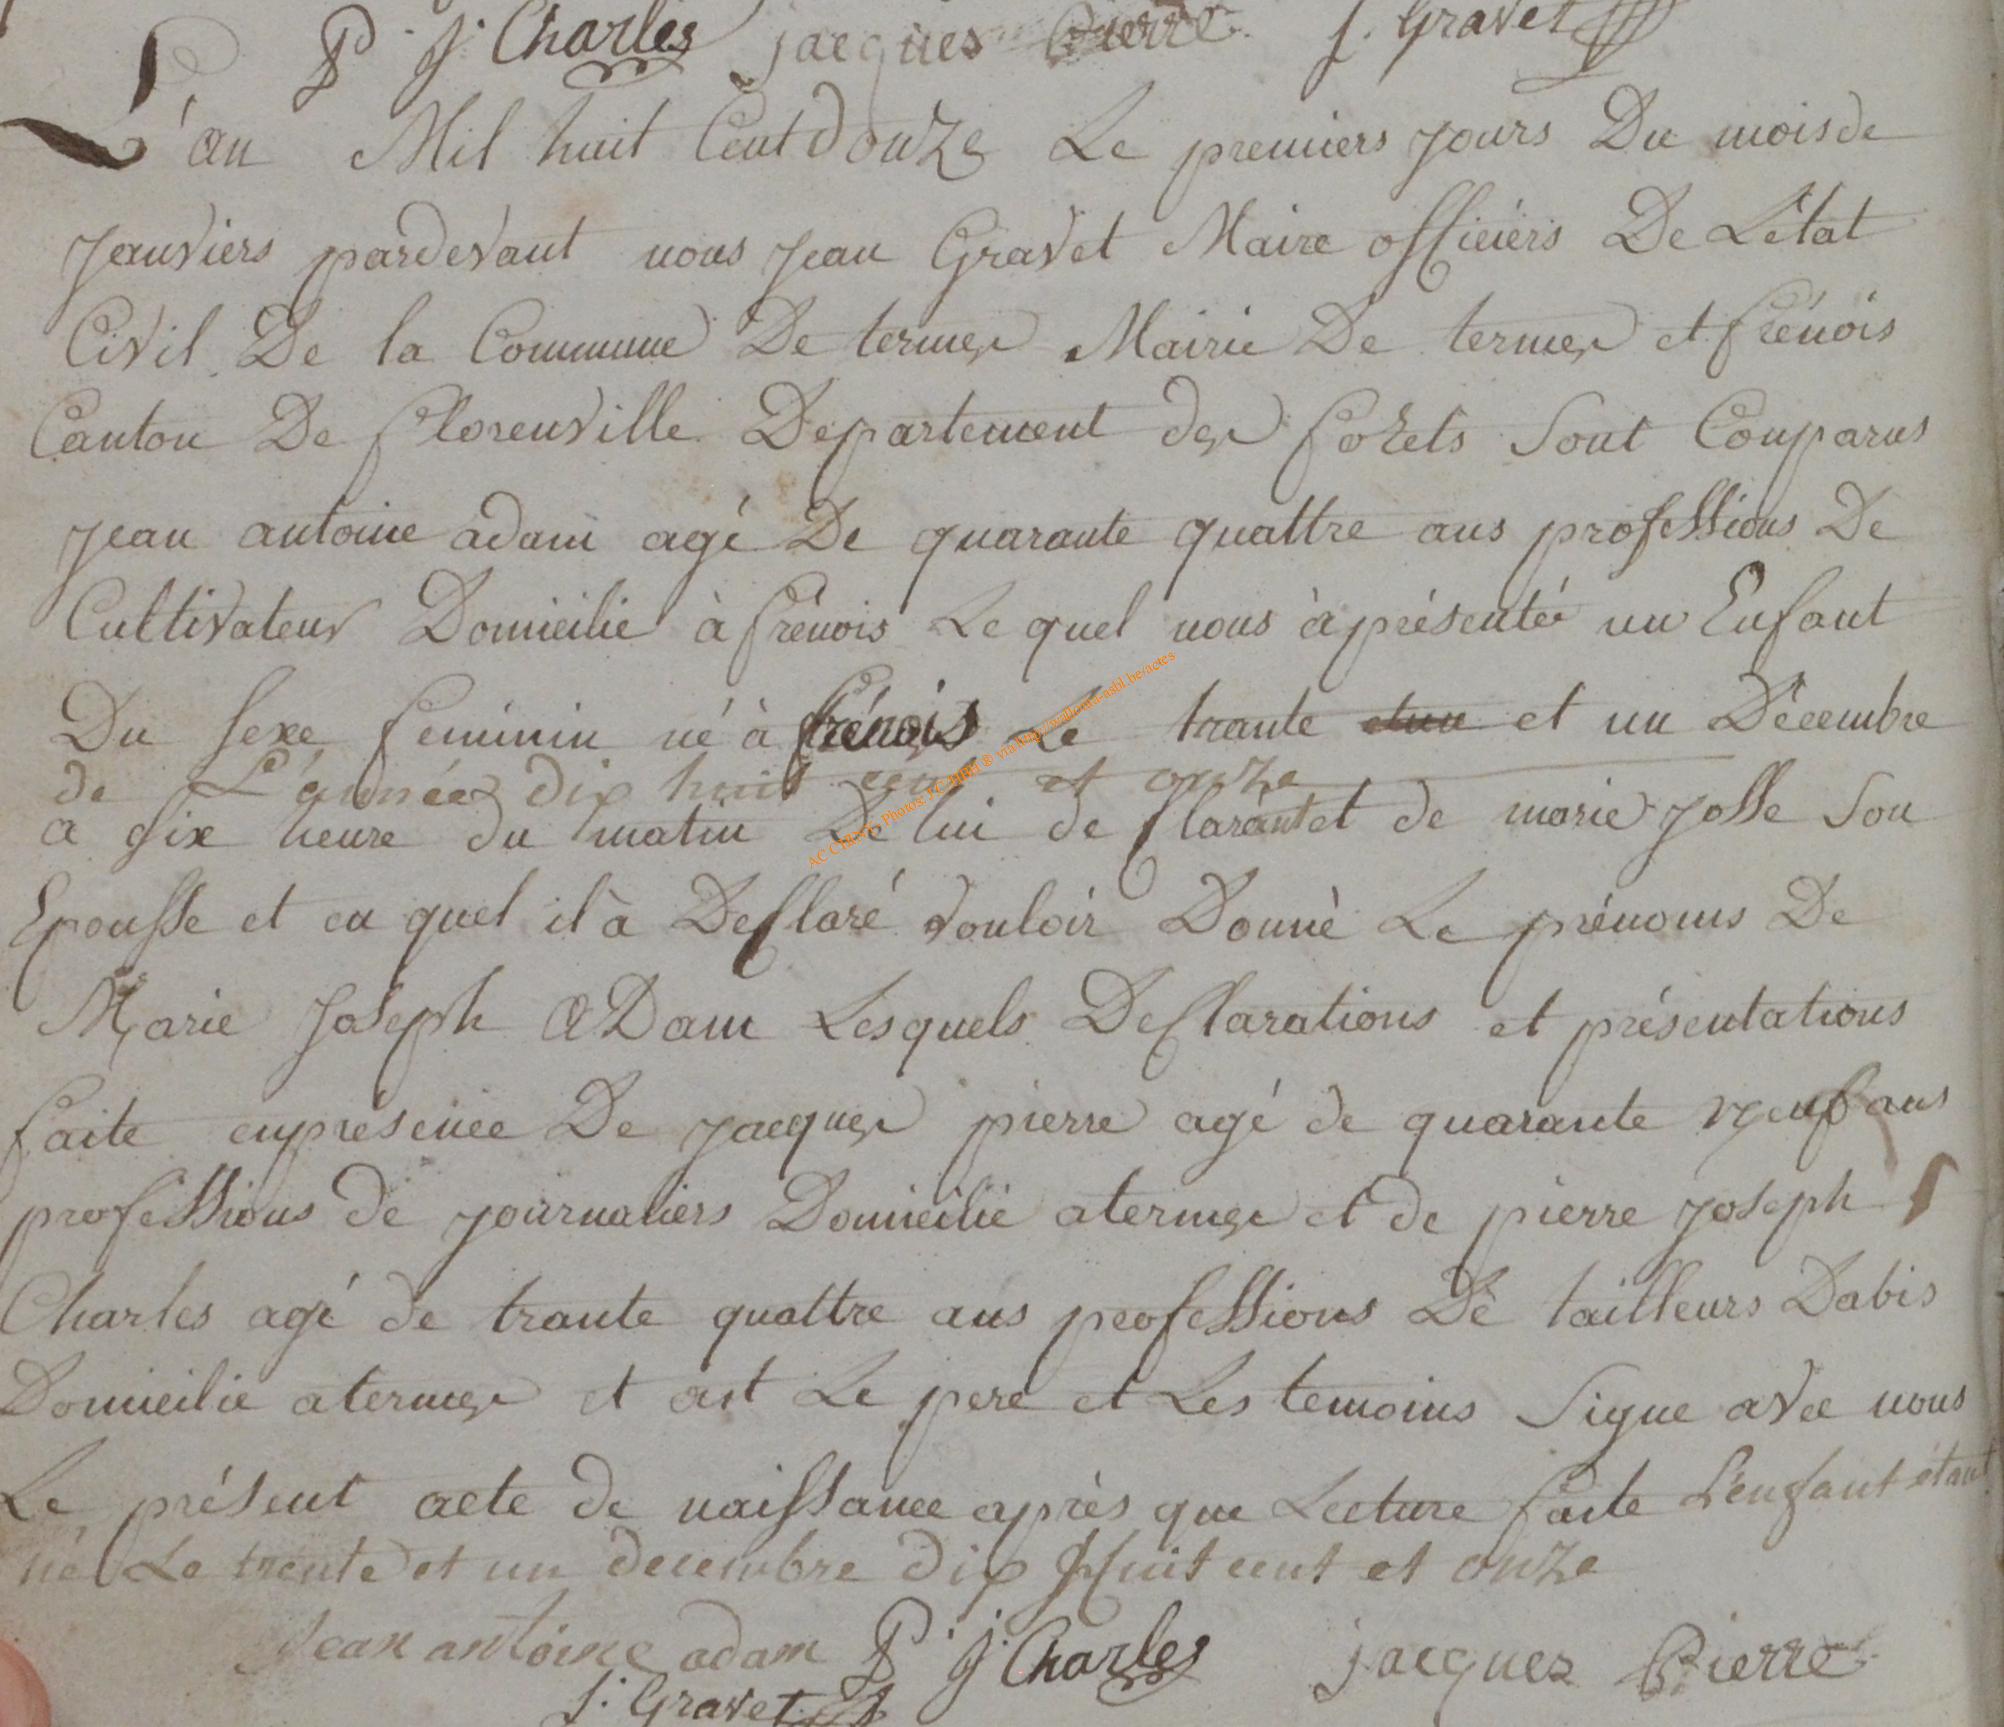 P. j. Charles jacques Pierre J. Gravet
L'an Mil huit Cent douze Le premiers jours Du mois de
Janviers pardevant nous Jean Gravet Maire officiérs De L'état
Civil De la Commune De termes Mairie De termes et frénois
Canton De florenville Departement des forets Sont Comparus
Jean antoine adam agé De quarante quattre ans professions De
Cultivateur Domicilié à frénois Le quel nous à présenté un Enfant
Du sexe feminin né à frénois Le trante etun et un Décembre
de L'année dix huit cent et onze
a six heure du matin De lui de Clarant et de marie josse Son
Epousse et au quel il à Declaré vouloir Donné Le prénoms De
Marie Joseph ADam Lesquels Declarations et présentations
faite enprésence De jacques pierre agé de quarante neuf ans
professions de journaliers Domicilié atermes et de pierre joseph
Charles agé de trante quattre ans professions De tailleurs Dabis
Domicilié atermes et ont Le pere et Les temoins Signe avec nous
Le présent acte de naissance après que Lecture faite L'enfant étant
né Le trente et un decembre dix huit cent et onze
Jean antoine adam P. j. Charles jacques Pierre
J. Gravet